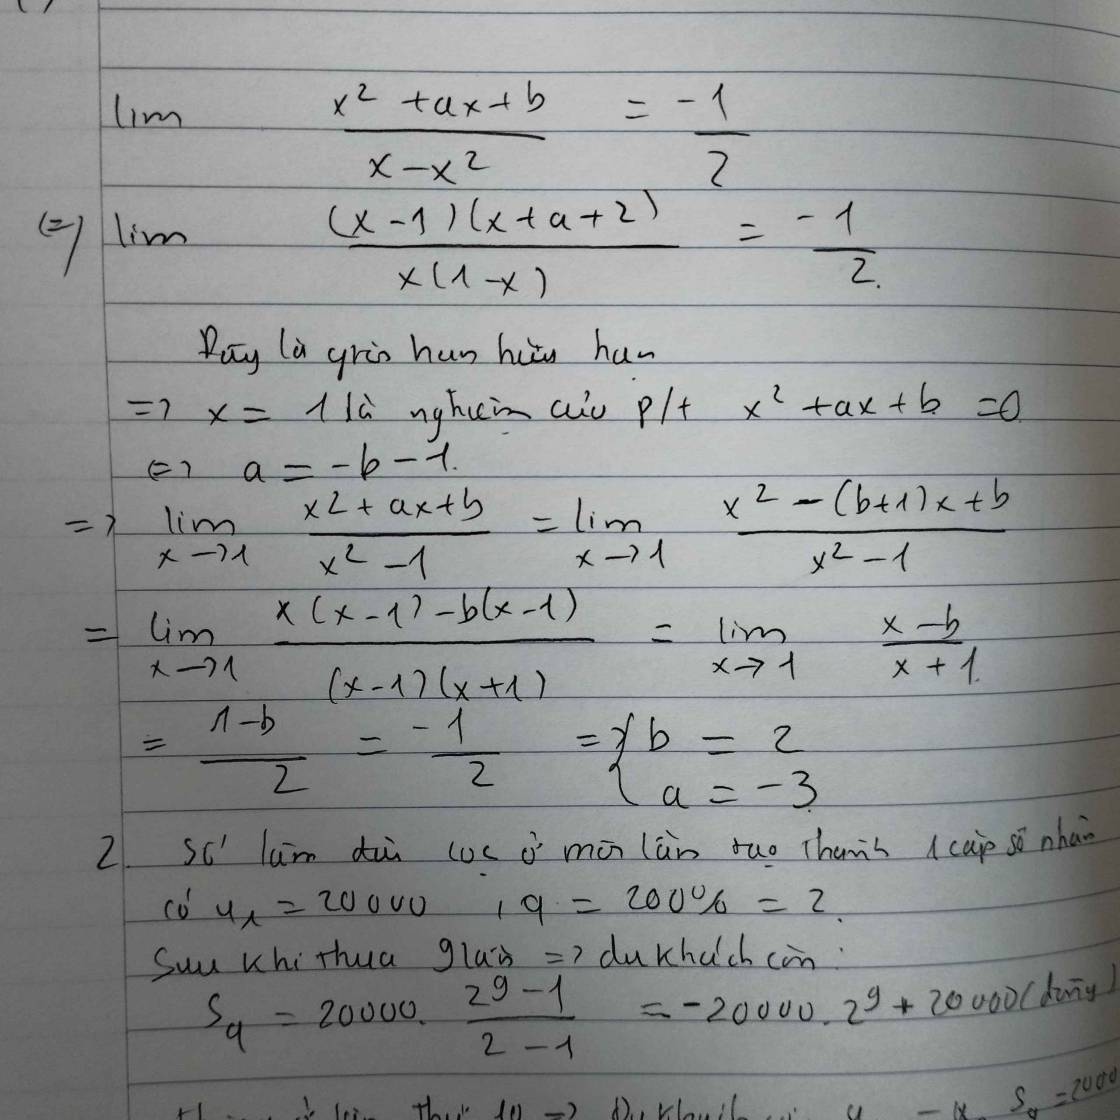 lim (x² + ax + b)/(x - x²) = -1/2
(=) lim (x - 1)(x + a + 2)/x(1 - x) = -1/2.
Đây là giới hạn hữu hạn
=> x = 1 là nghiệm của p/t x² + ax + b = 0
(=> a = -b - 1.
=> lim x->1 (x² + ax + b)/(x² - 1) = lim x->1 (x² - (b+1)x + b)/(x² - 1)
= lim x->1 (x(x - 1) - b(x - 1))/((x - 1)(x + 1)) = lim x->1 (x - b)/(x + 1)
= (1 - b)/2 = -1/2 => { b = 2
a = -3
2. Số lần đặt cọc ở mỗi lần tạo thành 1 cấp số nhân
có u₁ = 20000 , q = 200% = 2.
Sau khi thua 9 lần => du khách còn:
S₉ = 20000. (2⁹ - 1)/(2 - 1) = -20000. 2⁹ + 20000 (đồng)
thứ 10 => Du khách